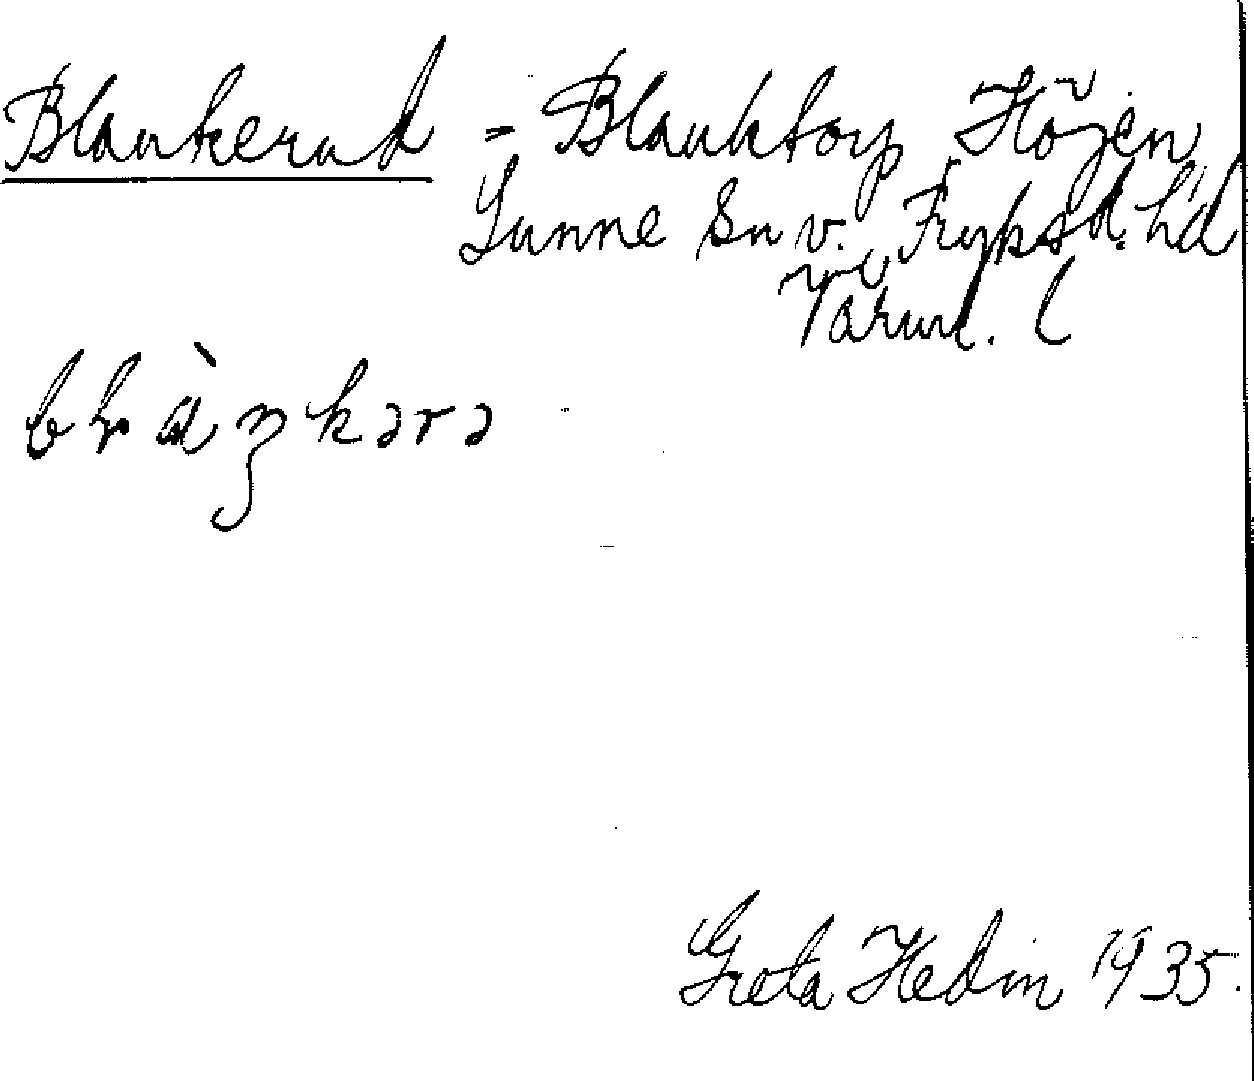 Blankerud = Blanktorp, Höjen,
Sunne Sn v. Fryksd. hd
Värml. l
blàŋkərə
Greta Hedin 1935.